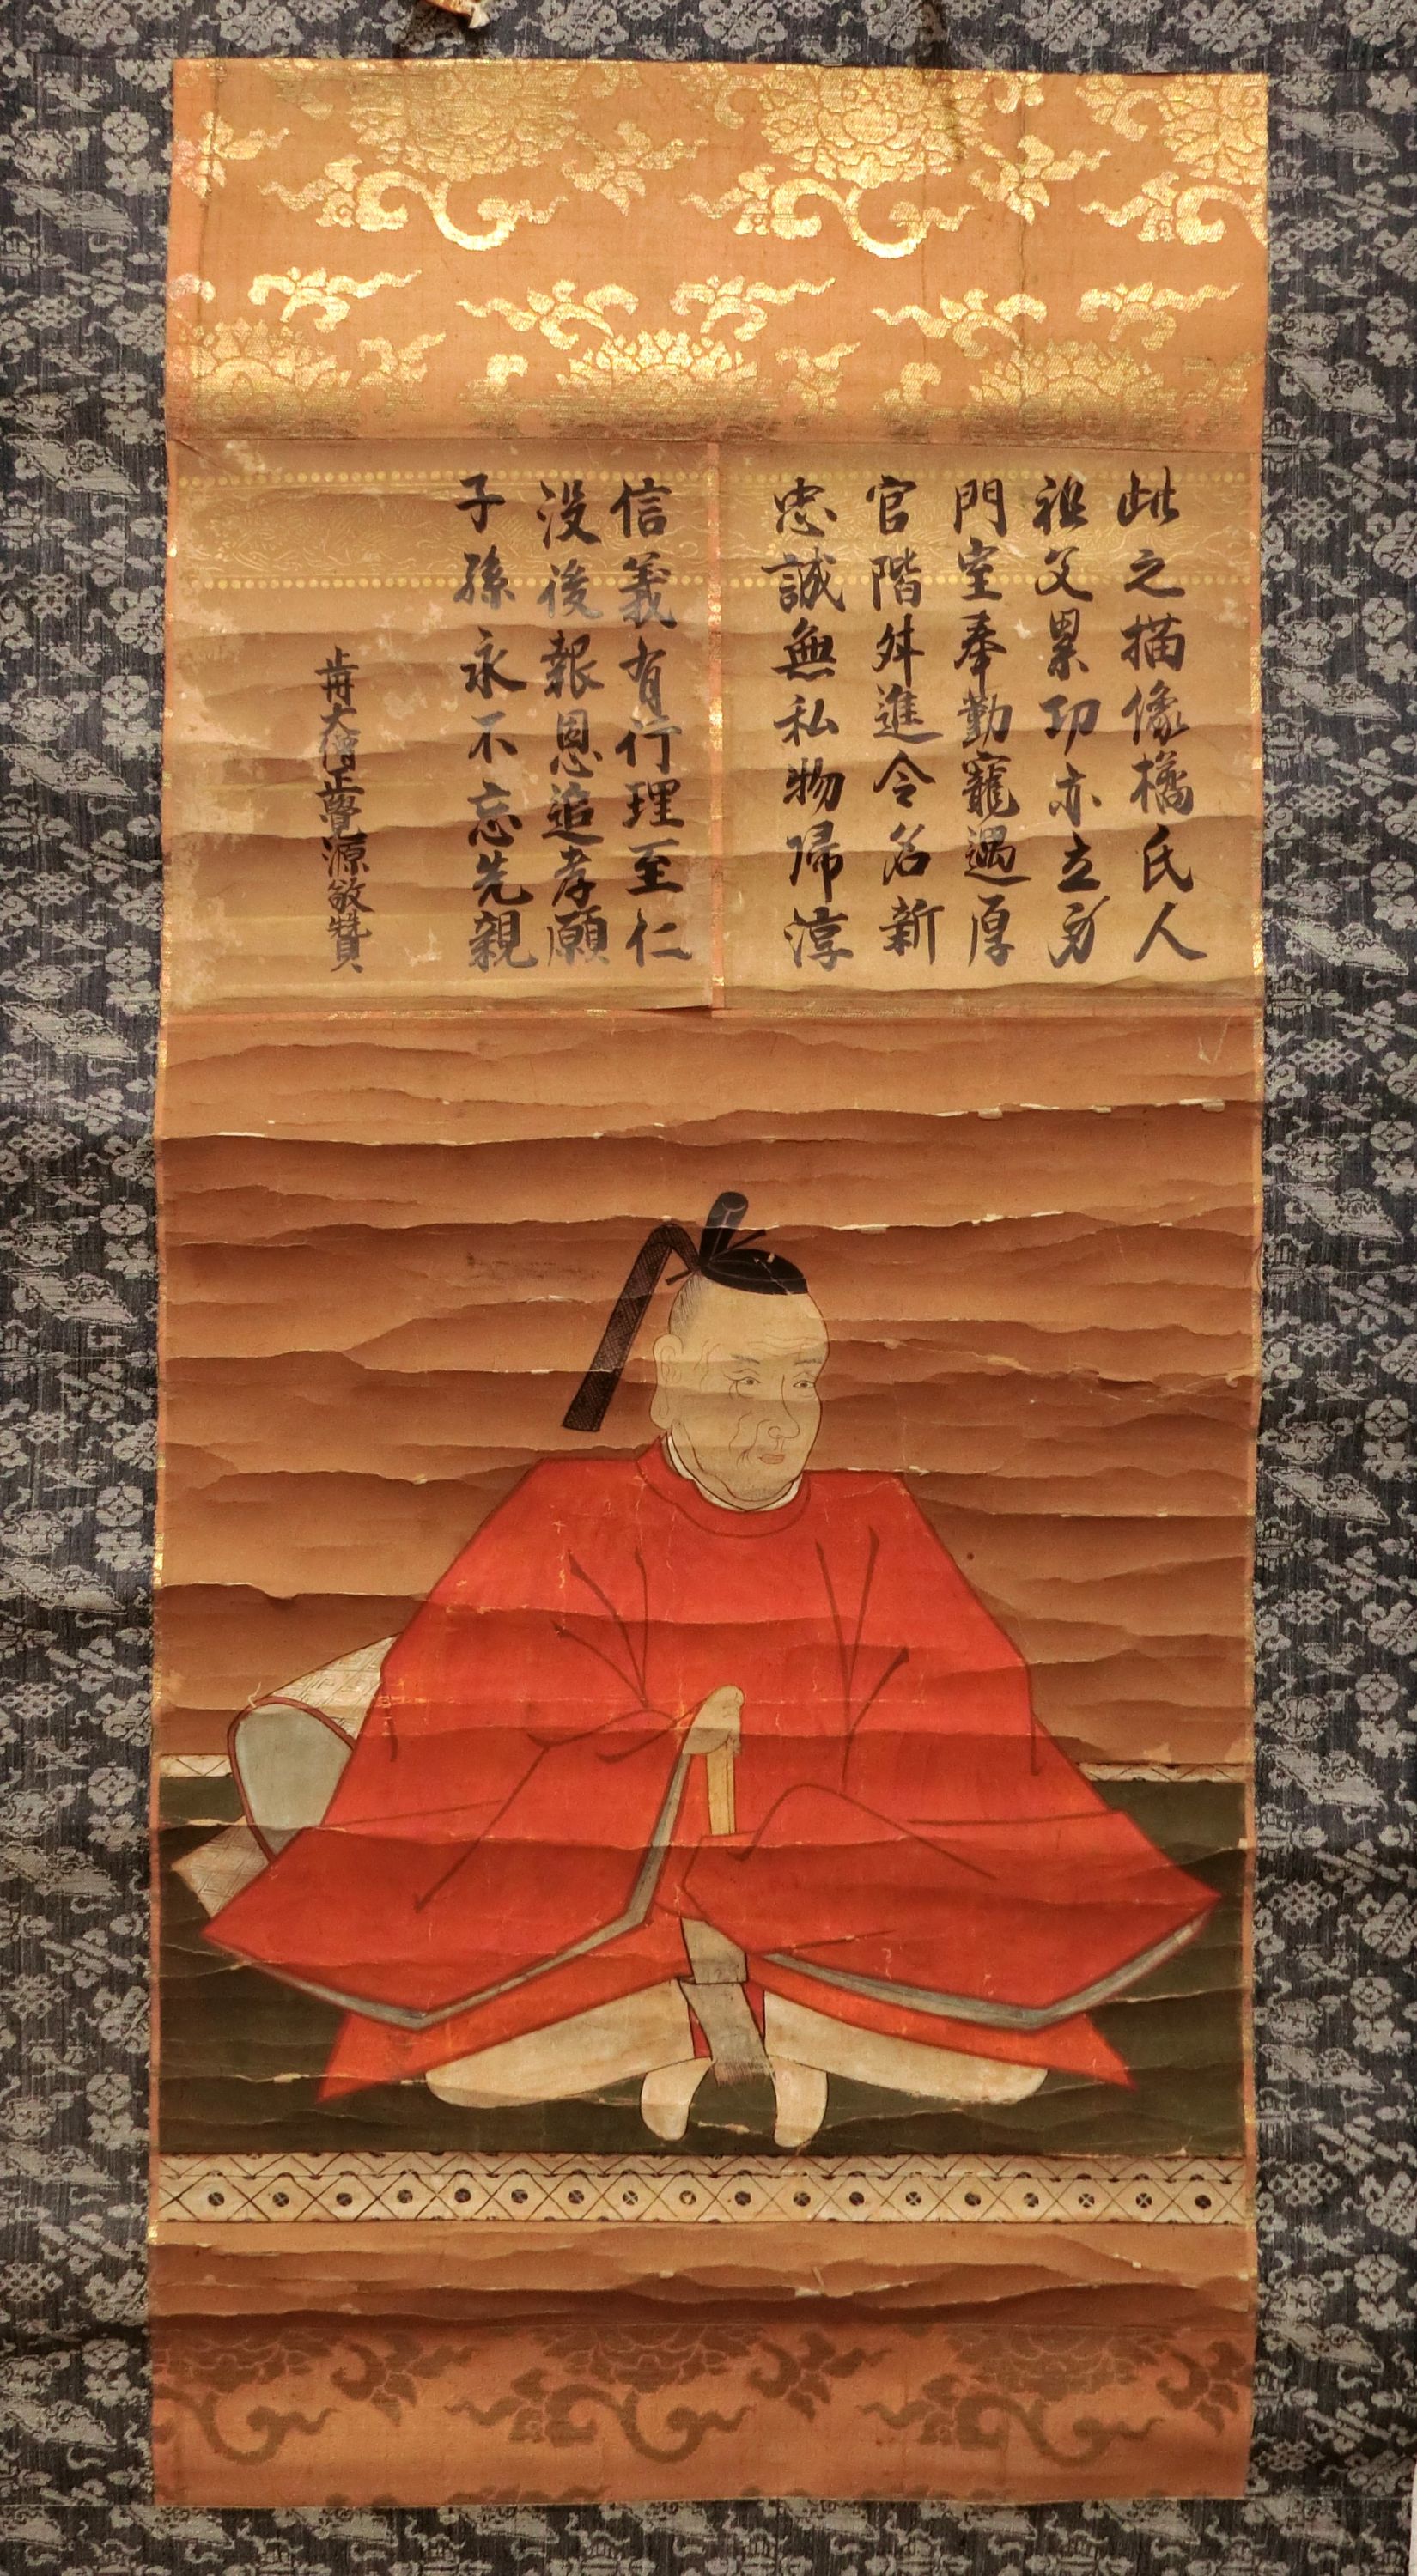 此之描像橘氏人
祖父累功亦立身
門室奉勤寵遇厚
官階舛進令名新
忠誠無私物帰淳
信義有行理至仁
没後報恩追孝願
子孫永不忘先親
前大僧正覺源敬贊